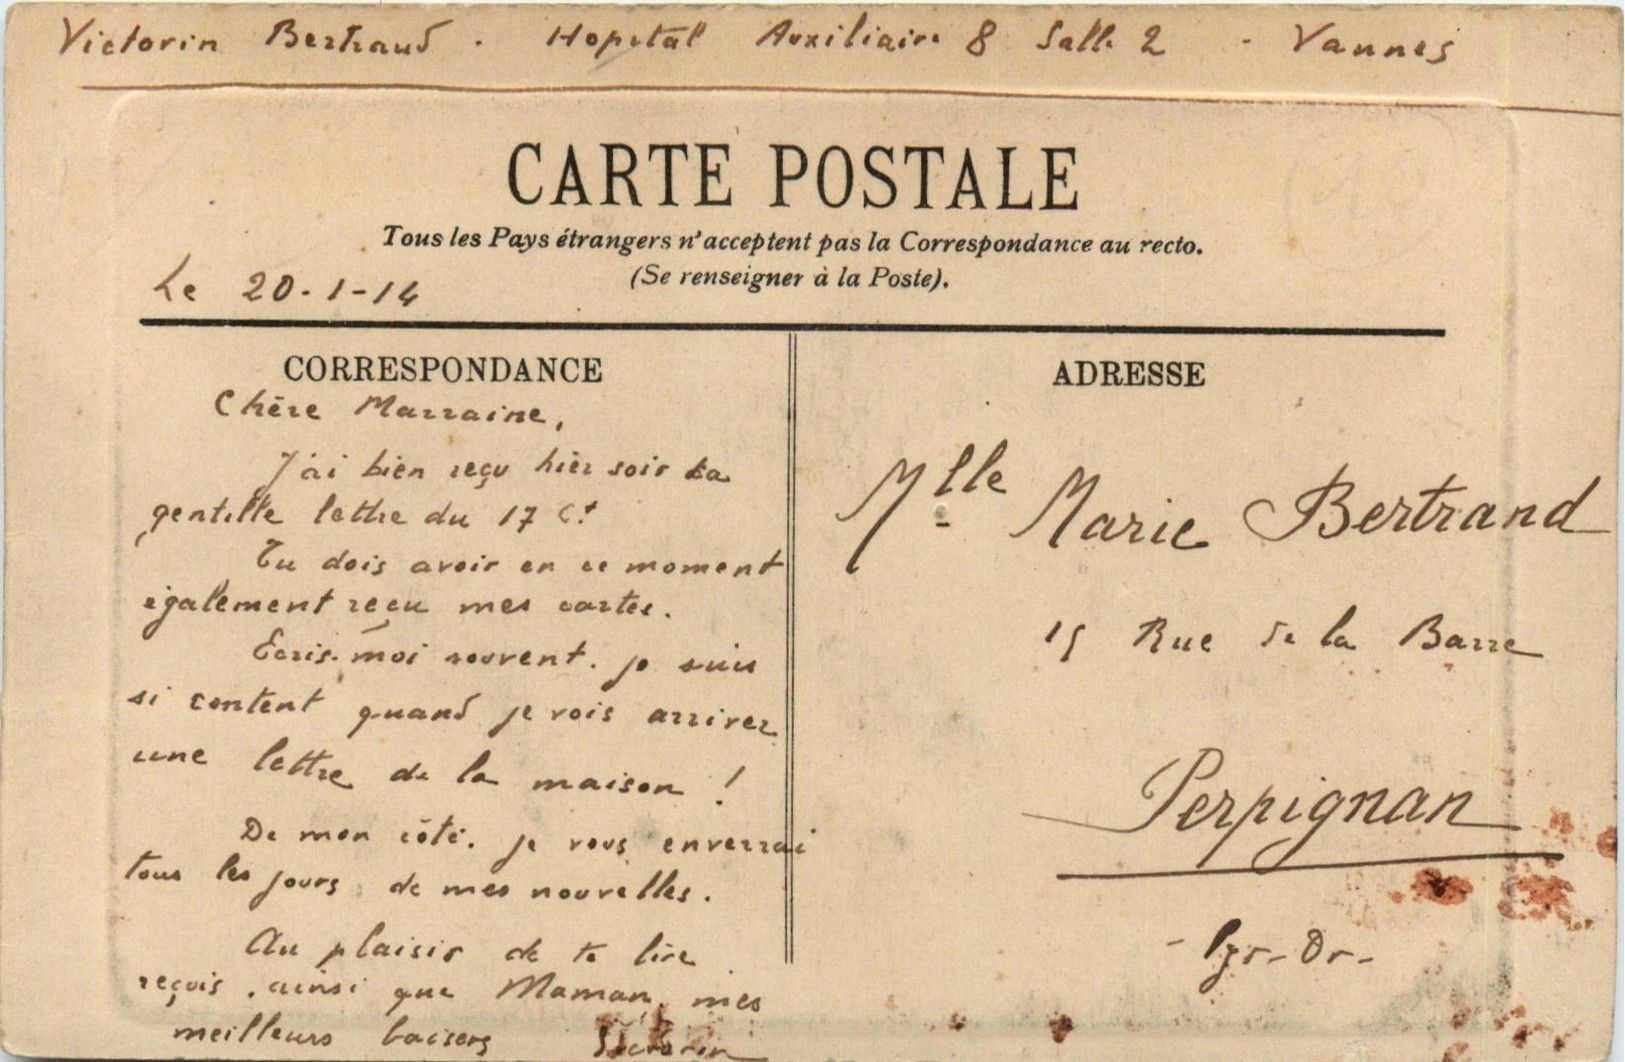 Victorin Bertrand. Hopital Auxiliaire 8 Salle 2 - Vannes
CARTE POSTALE
Tous les Pays étrangers n'acceptent pas la Correspondance au recto.
(Se renseigner à la Poste).
Le 20-1-14
CORRESPONDANCE
Chère Marraine,
J'ai bien reçu hier soir ta
gentille lettre du 17 Ct
Tu dois avoir en ce moment
également reçu mes cartes.
Ecris-moi souvent. je suis
si content quand je vois arriver
une lettre de la maison !
De mon côté. je vous enverrai
tous les jours de mes nouvelles.
Au plaisir de te lire
reçois, ainsi que Maman, mes
meilleurs baisers Victorin
ADRESSE
Mlle Marie Bertrand
15 Rue de la Barre
Perpignan
- Pyr-Or-